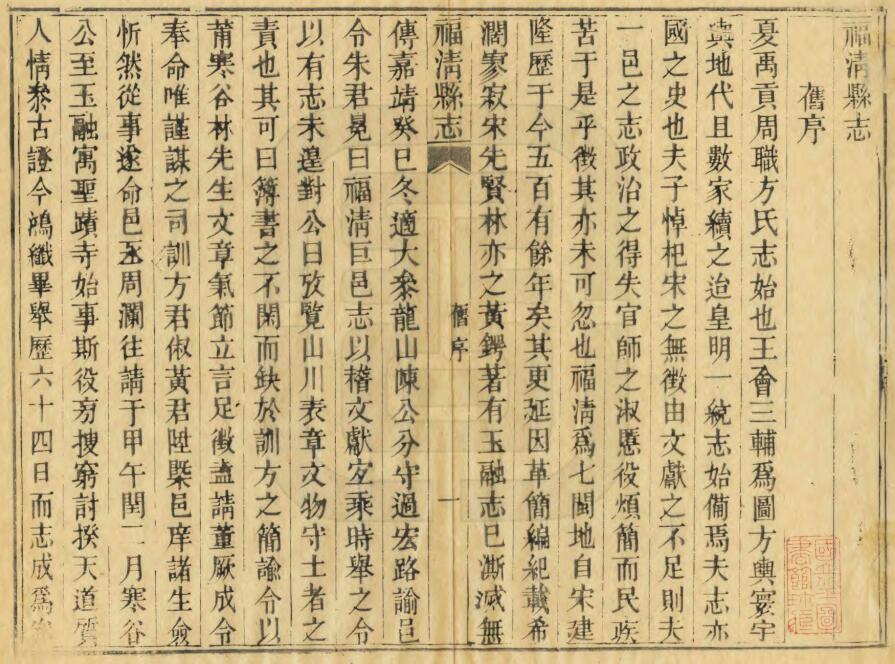 福清縣志
舊序
夏禹貢周職方氏志始也王會三輔爲圖方輿寰宇
輿地代且數家續之迨皇明一統志始備焉夫志亦
國之史也夫子悼杞宋之無徵由文獻之不足則夫
一邑之志政治之得失官師之淑慝役煩簡而民疾
苦于是乎徵其亦未可忽也福清爲七閩地自宋建
隆歷于今五百有餘年矣其更延因革簡編紀載希
濶寥寂宋先賢林亦之黃鍔著有玉融志巳澌滅無
福清縣志
舊序
一
傳嘉靖癸巳冬適大參龍山陳公分守過宏路諭邑
令朱君冕曰福清巨邑志以稽文獻宜乘時舉之令
以有志未遑對公曰攷覽山川表章文物守土者之
責也其可曰簿書之不閑而缺於訓方之簡諭令以
莆寒谷林先生文章氣節立言足徵盍請董厥成令
奉命唯謹謀之司訓方君俶黃君陞槩邑庠諸生僉
忻然從事遂命邑 周瀾往請于甲午閏二月寒谷
公至玉融寓聖蹟寺始事斯役旁搜窮討揆天道質
人情參古證今鴻纖畢舉歷六十四日而志成爲